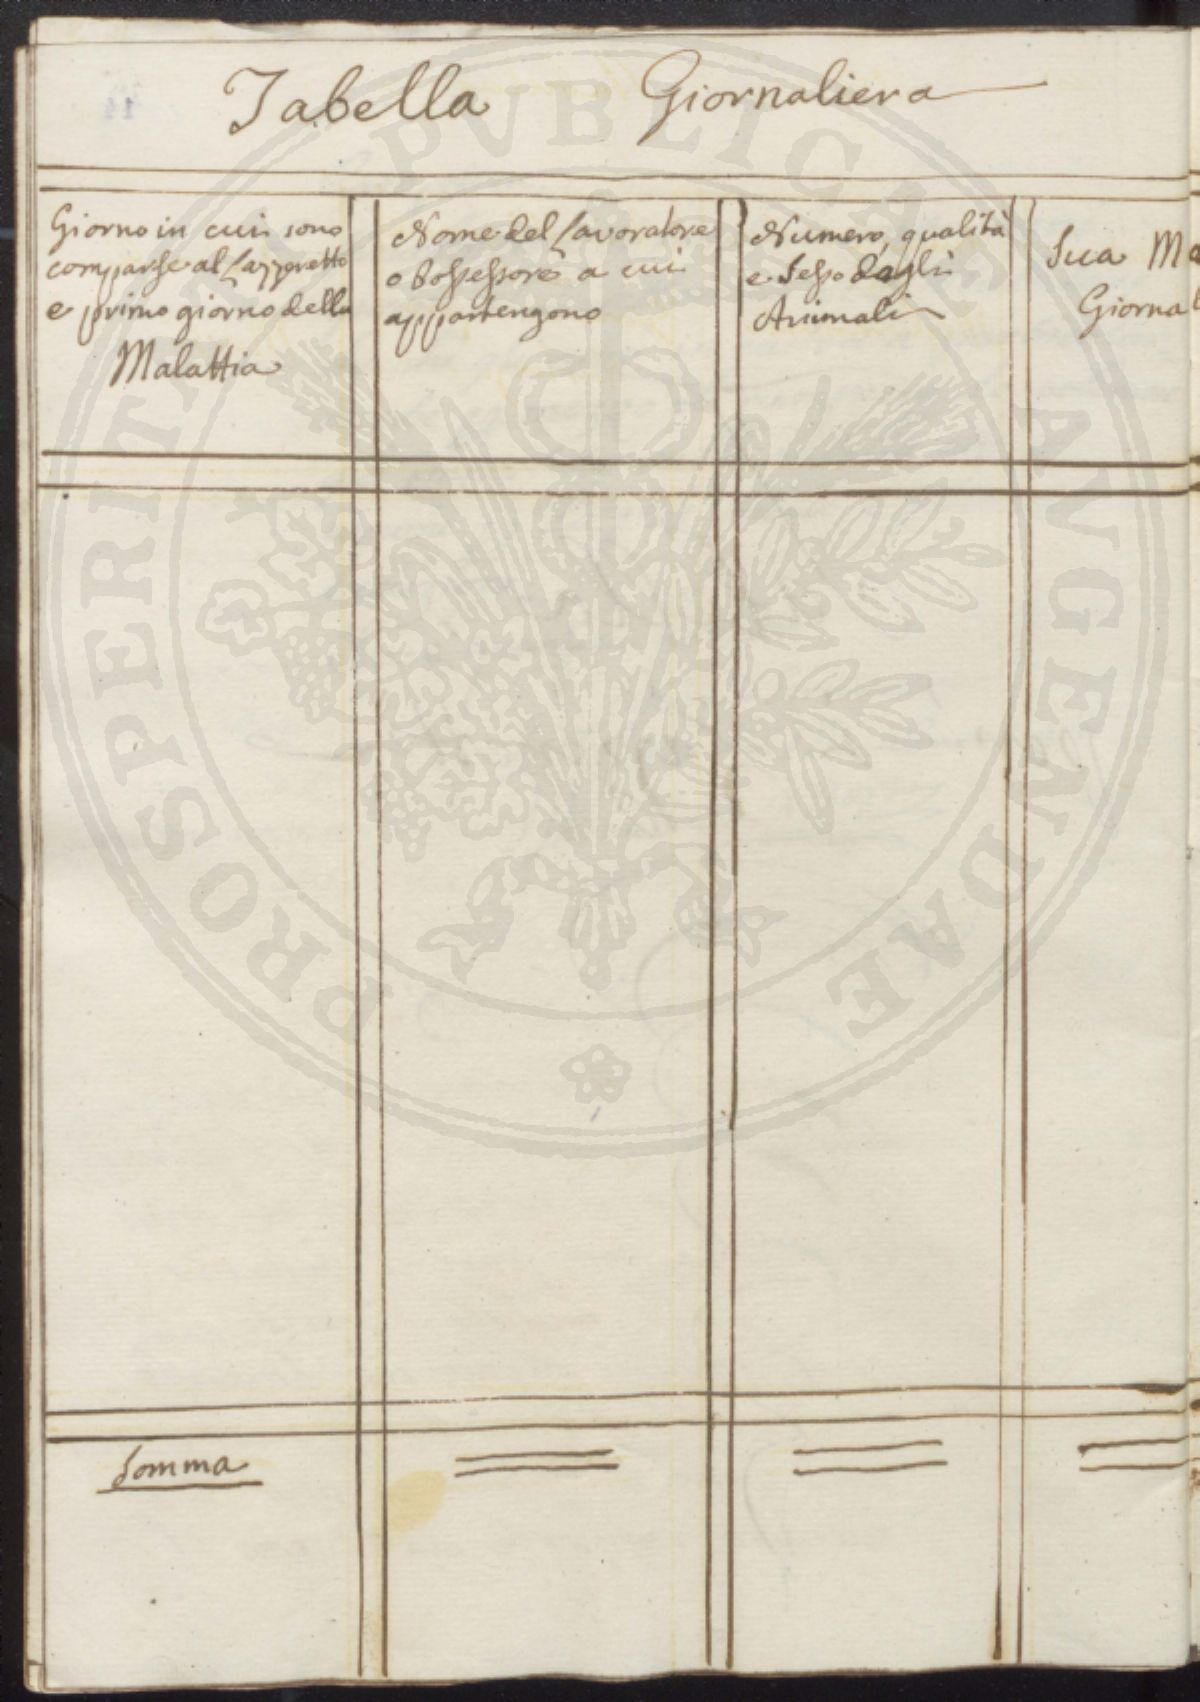 Tabella Giornaliera
Giorno in cui sono
comparse al Lazzeretto
e primo giorno della
Malattia
Nome del Lavoratore
o Possessore a cui
appartengono
Numero, qualità
e Sesso degli
Animali
Sua Ma
Giorna
Somma
PROSPERITATI PVBLICAE AVGENDAE